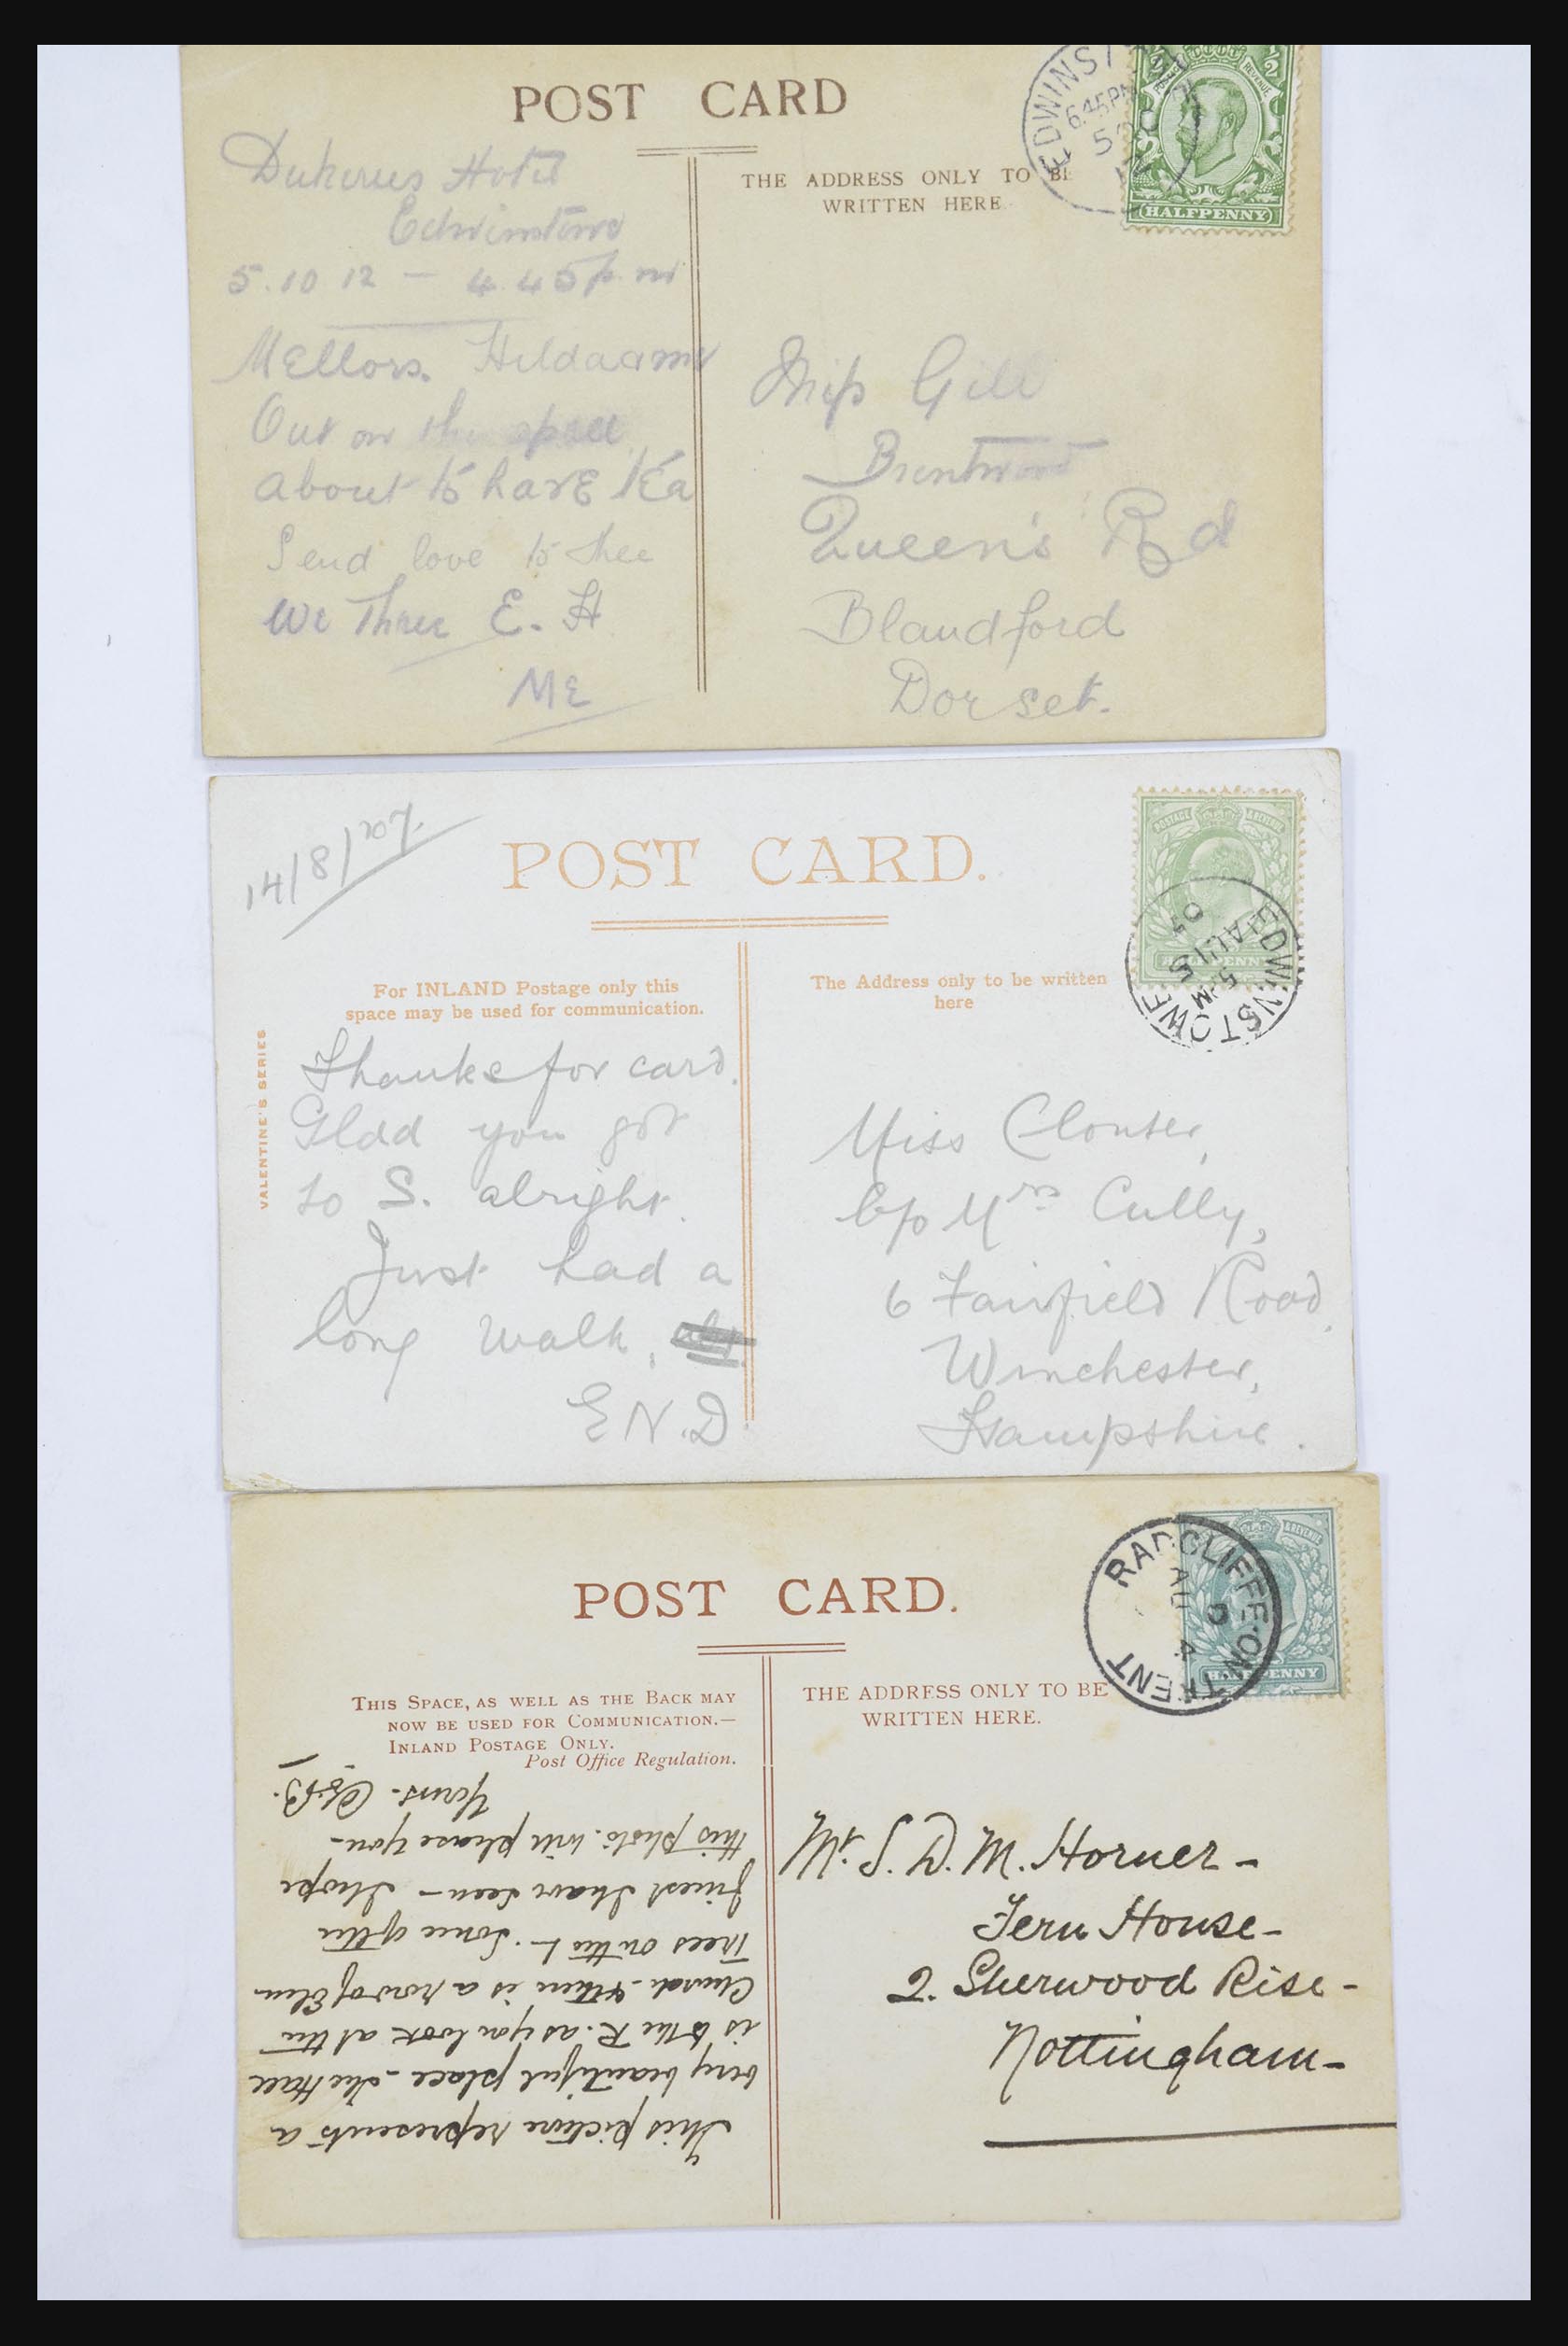 POST CARD
THE ADDRESS ONLY TO BE
WRITTEN HERE
EDWINST
6.45PM
HALFPENNY
Dukeries Hotel
Edwinstowe
5.10 12 – 4.45 p.m
Mellors. Hilda and
Out on the
about to have tea
Send love to thee
We Three E. H
ME
Miss Gill
Brentwood
Queen's Rd
Blandford
Dorset.
14/8/
POST CARD.
For INLAND Postage only this
space may be used for communication.
The Address only to be written
here
POSTAGE & REVENUE
HALFPENNY
EDWINSTOWE
5 PM
AU 15
VALENTINE'S SERIES
Thanks for card.
Glad you got
to S. alright.
Just had a
long walk,
E N.D.
Miss Clouter,
C/o Mrs Cully,
6 Fairfield Road,
Winchester,
Hampshire.
POST CARD.
RADCLIFFE-ON TRENT
AU
HALFPENNY
THIS SPACE, AS WELL AS THE BACK MAY
NOW BE USED FOR COMMUNICATION.—
INLAND POSTAGE ONLY.
Post Office Regulation.
THE ADDRESS ONLY TO BE
WRITTEN HERE.
This picture represents a
very beautiful place – The Hall
is to the R. as you look at the
Church – there is a row of Elm
Trees on the L. – Some of the
finest I have seen – I hope
this photo. will please you –
Yours.
Mr. S. D. M. Horner –
Fern House –
2. Sherwood Rise –
Nottingham –